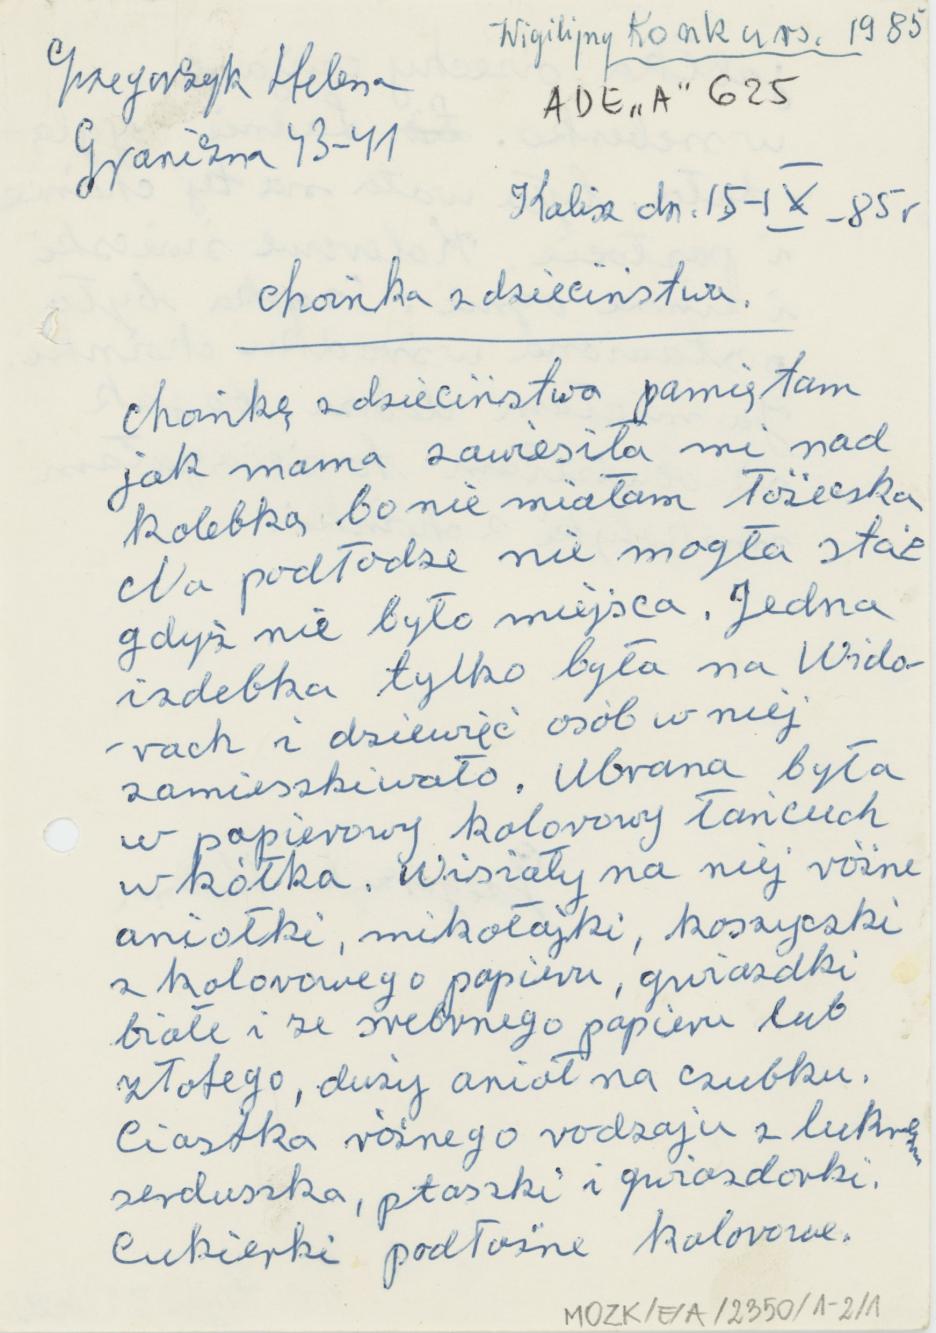 Wigilijny Konkurs. 1985
Grzegorzyk Helena
ADE „A" 625
Graniczna 43-41
Kalisz dn. 15-IX-85r
choinka z dzieciństwa.
choinkę z dzieciństwa pamiętam
jak mama zawiesiła mi nad
kolebką bo nie miałam łóżecska
Na podłodze nie mogła stać
gdyż nie było miejsca. Jedna
izdebka tylko była na Wido-
-rach i dziewięć osób w niej
zamieszkiwało. Ubrana była
w papierowy kolorowy łańcuch
w kółka. Wisiały na niej różne
aniołki, mikołajki, koszyczki
z kolorowego papieru, gwiazdki
białe i ze srebrnego papieru lub
złotego, duży anioł na czubku.
Ciastka różnego rodzaju z lukrem
serduszka, ptaszki i gwiazdorki.
Cukierki podłużne kolorowe.
MOZK/E/A/2350/1-2/1